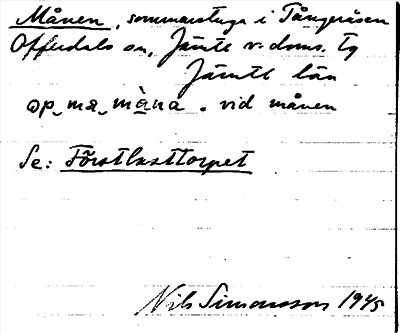 Månen, sommarstuga i Tångeråsen
Offerdals sn, Jämte v. doms. tg
Jämtl län
op mæ màna. vid månen
Se: Förstlusttorpet
Nils Simonsson 1945